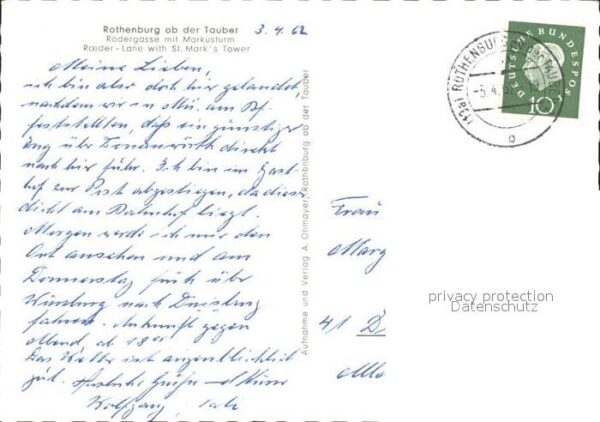 Rothenburg ob der Tauber
Rödergasse mit Markusturm
Rœder-Lane with St. Mark's Tower
3. 4. 62
Meine Lieben,
ich bin also doch hier gelandet,
nachdem wir in Mü. am Bf.
feststellten, daß ein günstiger
Zug über Donauwörth direkt
nach hier führ. Ich bin im Gast-
hof zur Post abgestiegen, da dieser
dicht am Bahnhof liegt.
Morgen werde ich mir den
Ort ansehen und am
Donnerstag früh über
Würzburg nach Duisburg
fahren. Ankunft gegen
Abend ab 18⁰⁰
Das Wetter ist augenblicklich
gut. Herzliche Grüße und Küsse
Wolfgang
Aufnahme und Verlag A. Ohmayer, Rothenburg ob der Tauber
(13a) ROTHENBURG OB DER TAUBER
-3. 4.
a
DEUTSCHE BUNDESPOST
10
Frau
Marg
41 D
privacy protection
Datenschutz